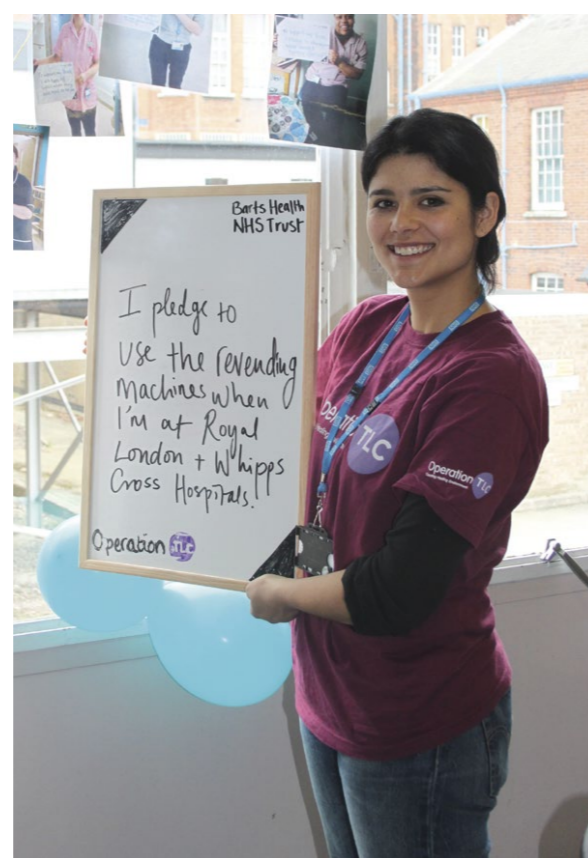 Barts Health
NHS Trust
I pledge to
use the revending
machines when
I'm at Royal
London + Whipps
Cross Hospitals.
Operation TLC
Operation TLC
Operation TLC